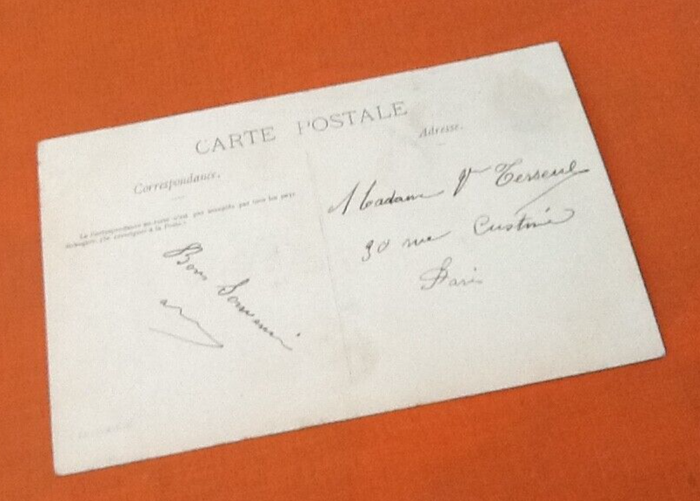 CARTE POSTALE
Correspondance.
La Correspondance au recto n'est pas acceptée par tous les pays
étrangers. (Se renseigner à la Poste.)
Bons Souvenir
Adresse.
Madame Vve
30 rue Custine
Paris